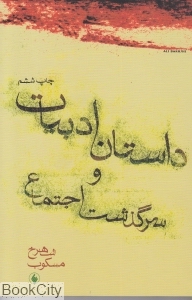 ALI BAKHSI
چاپ ششم
داستان ادبیات
و
سرگذشت اجتماع
شاهرخ
مسکوب
BookCity.